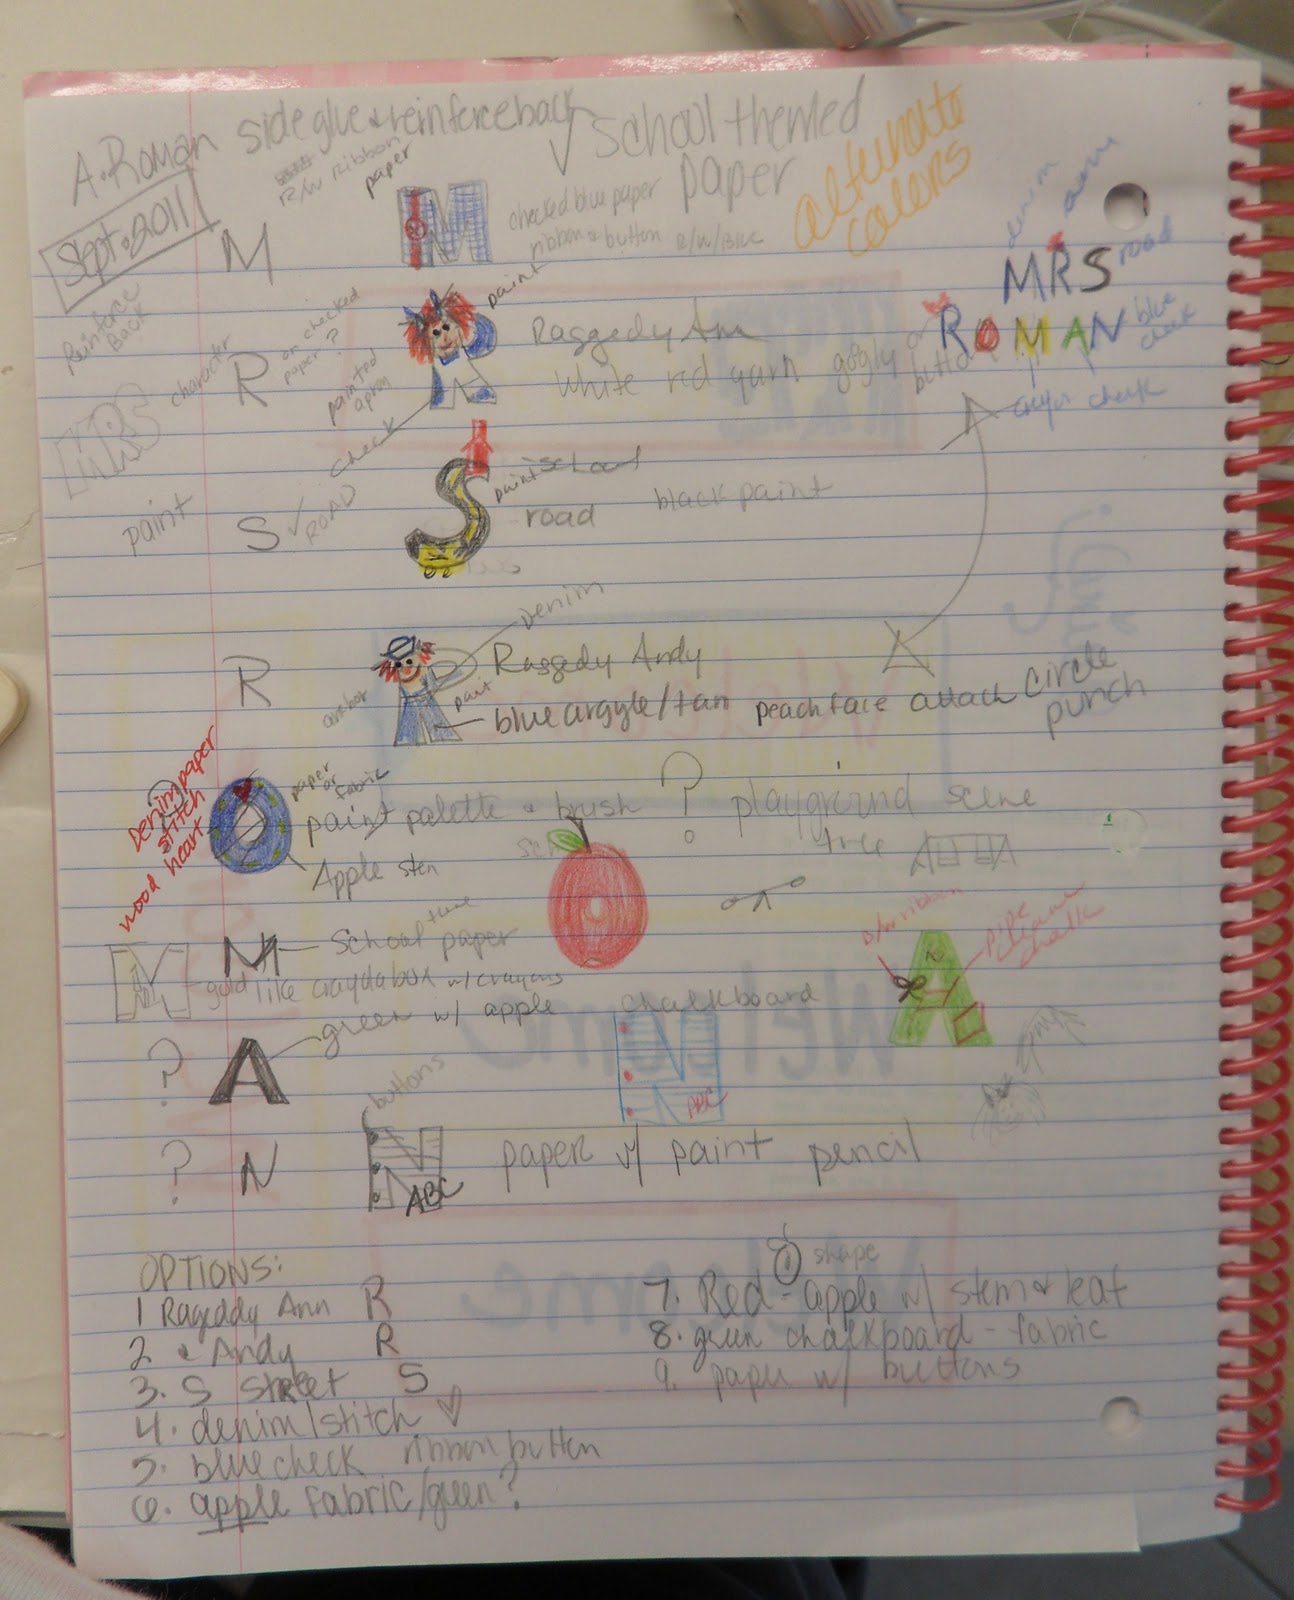 A. Roman side glue & reinforce back
✓ School themed paper
alternate colors
Sept. 2011
R/W ribbon
paper
M
M
checked blue paper
ribbon & button R/W/Blue
denim
MRS
road
Reinforce Back
character
R
or checked paper?
painted apron
check
paint
Raggedy Ann
white red yarn googly or button
ROMAN
blue check
A crayon chalk
MRS
paint
S ✓ ROAD
S
paint school
road
black paint
A
R
anchor
R
denim
Raggedy Andy
paint
blue argyle/tan peach face attach circle punch
Denim paper
stitch
wood heart
paper or fabric
paint palette & brush ? playground scene
tree
Apple stem
M
M
School theme paper
gold like crayola box w/ crayons
b/w ribbon
A
pipe
chalk
? A green w/ apple
chalkboard
N
ABC
buttons
? N
N
ABC
paper w/ paint pencil
OPTIONS:
1 Rageddy Ann R
2 & Andy R
3. S Street S
4. denim/stitch ♡
5. blue check ribbon button
6. apple fabric/green?
shape
7. Red - apple w/ stem & leaf
8. green chalkboard - fabric
9. paper w/ buttons